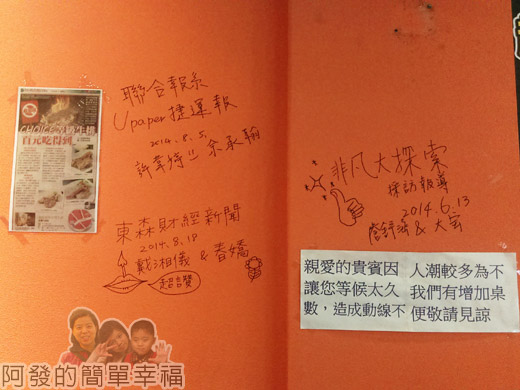 聯合報系
Upaper 捷運報
2014.8.5.
東森財經新聞
2014.8.18
戴湘儀 & 春嬌
超讚
百元吃得到
非凡大探索
採訪報導
2014.6.13
& 大宏
親愛的貴賓因 人潮較多為不
讓您等候太久 我們有增加桌
數，造成動線不 便敬請見諒
阿發的簡單幸福